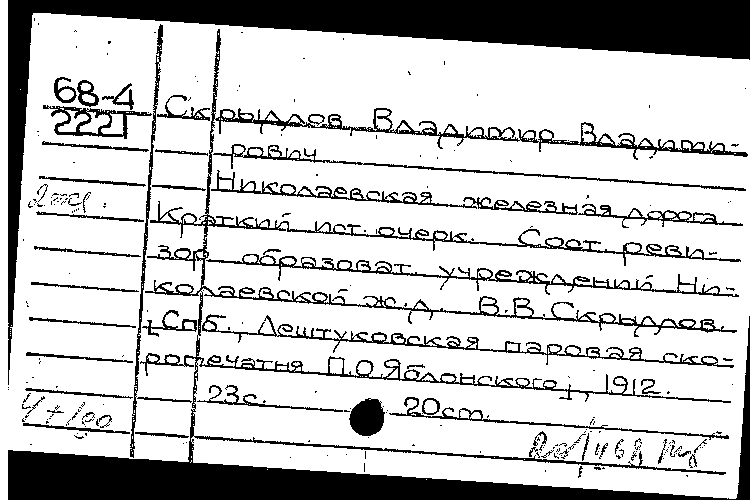 68-4
2221
Скрыдлов, Владимир Владими-
рович
Николаевская железная дорога.
2 экз.
Краткий ист. очерк. Сост. реви-
зор образоват. учреждений Ни-
колаевской ж.д. В.В.Скрыдлов.
[Спб., Лештуковская паровая ско-
ропечатня П.О.Яблонского], 1912.
23с. 20ст.